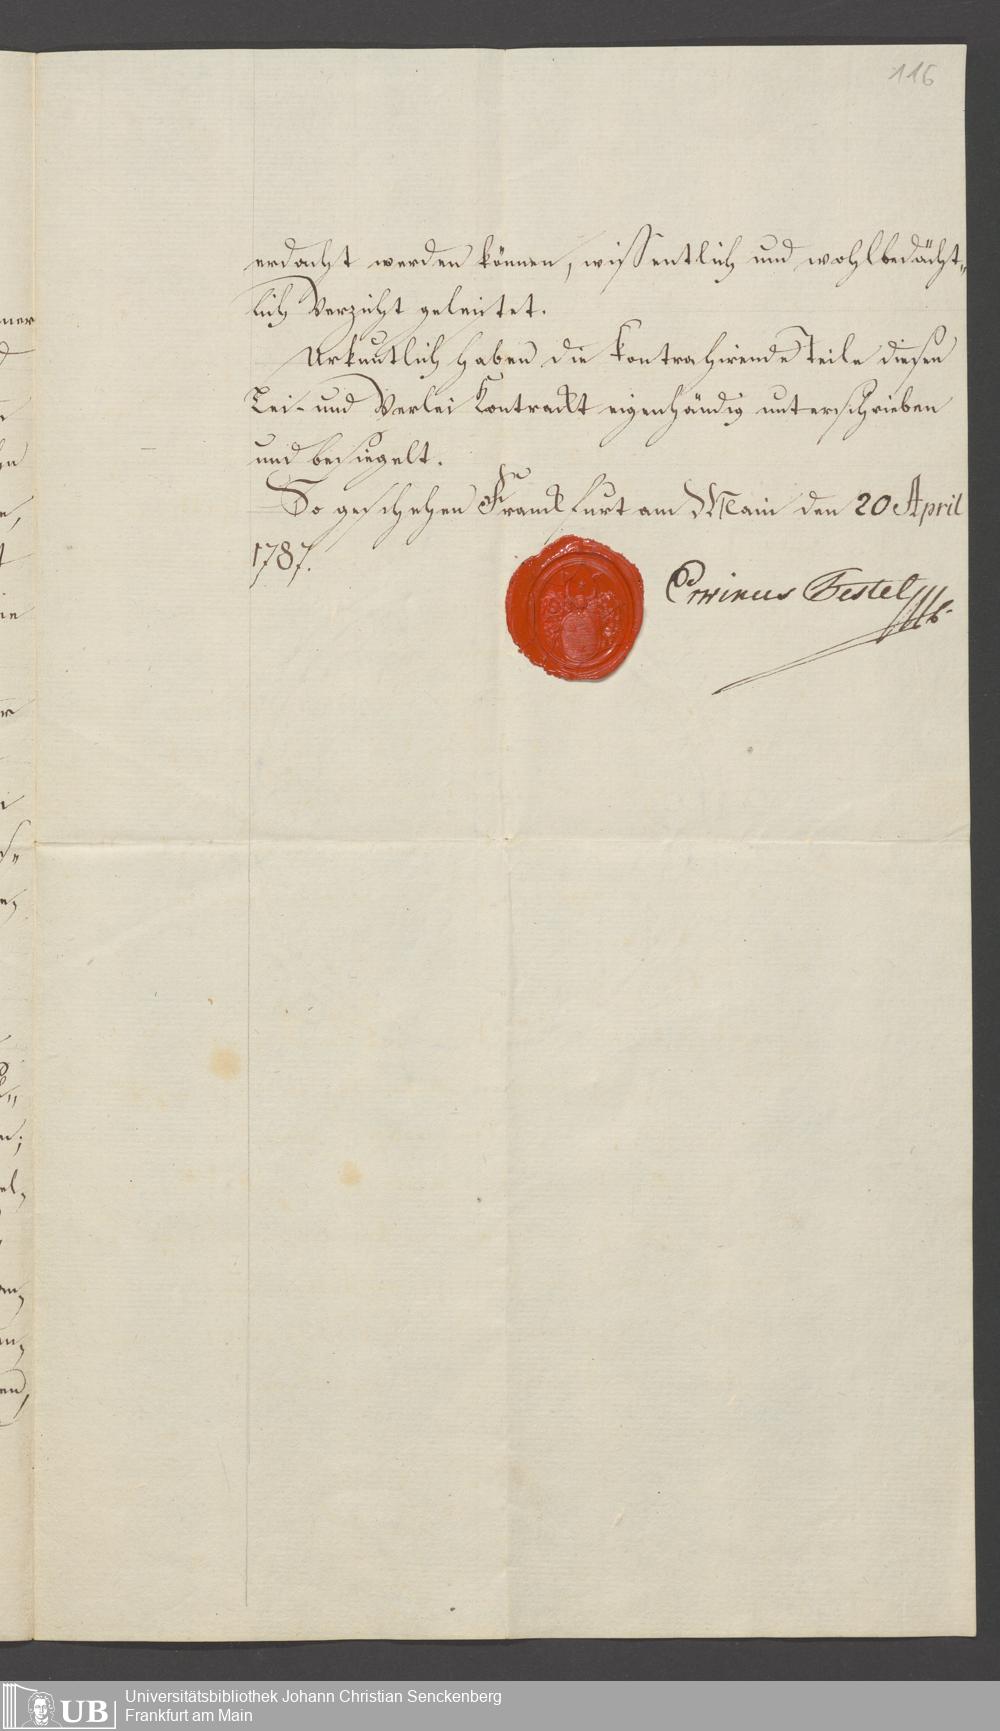 116
erdacht werden können, wissentlich und wohlbedächt„
lich Verzicht geleistet.
Urkuntlich haben die kontrahirende Teile diesen
Lei- und Verlei Kontrackt eigenhändig unterschrieben
und besiegelt.
So geschehen Franckfurt am Main den 20 April
1787.
Textel
UB
Universitätsbibliothek Johann Christian Senckenberg
Frankfurt am Main